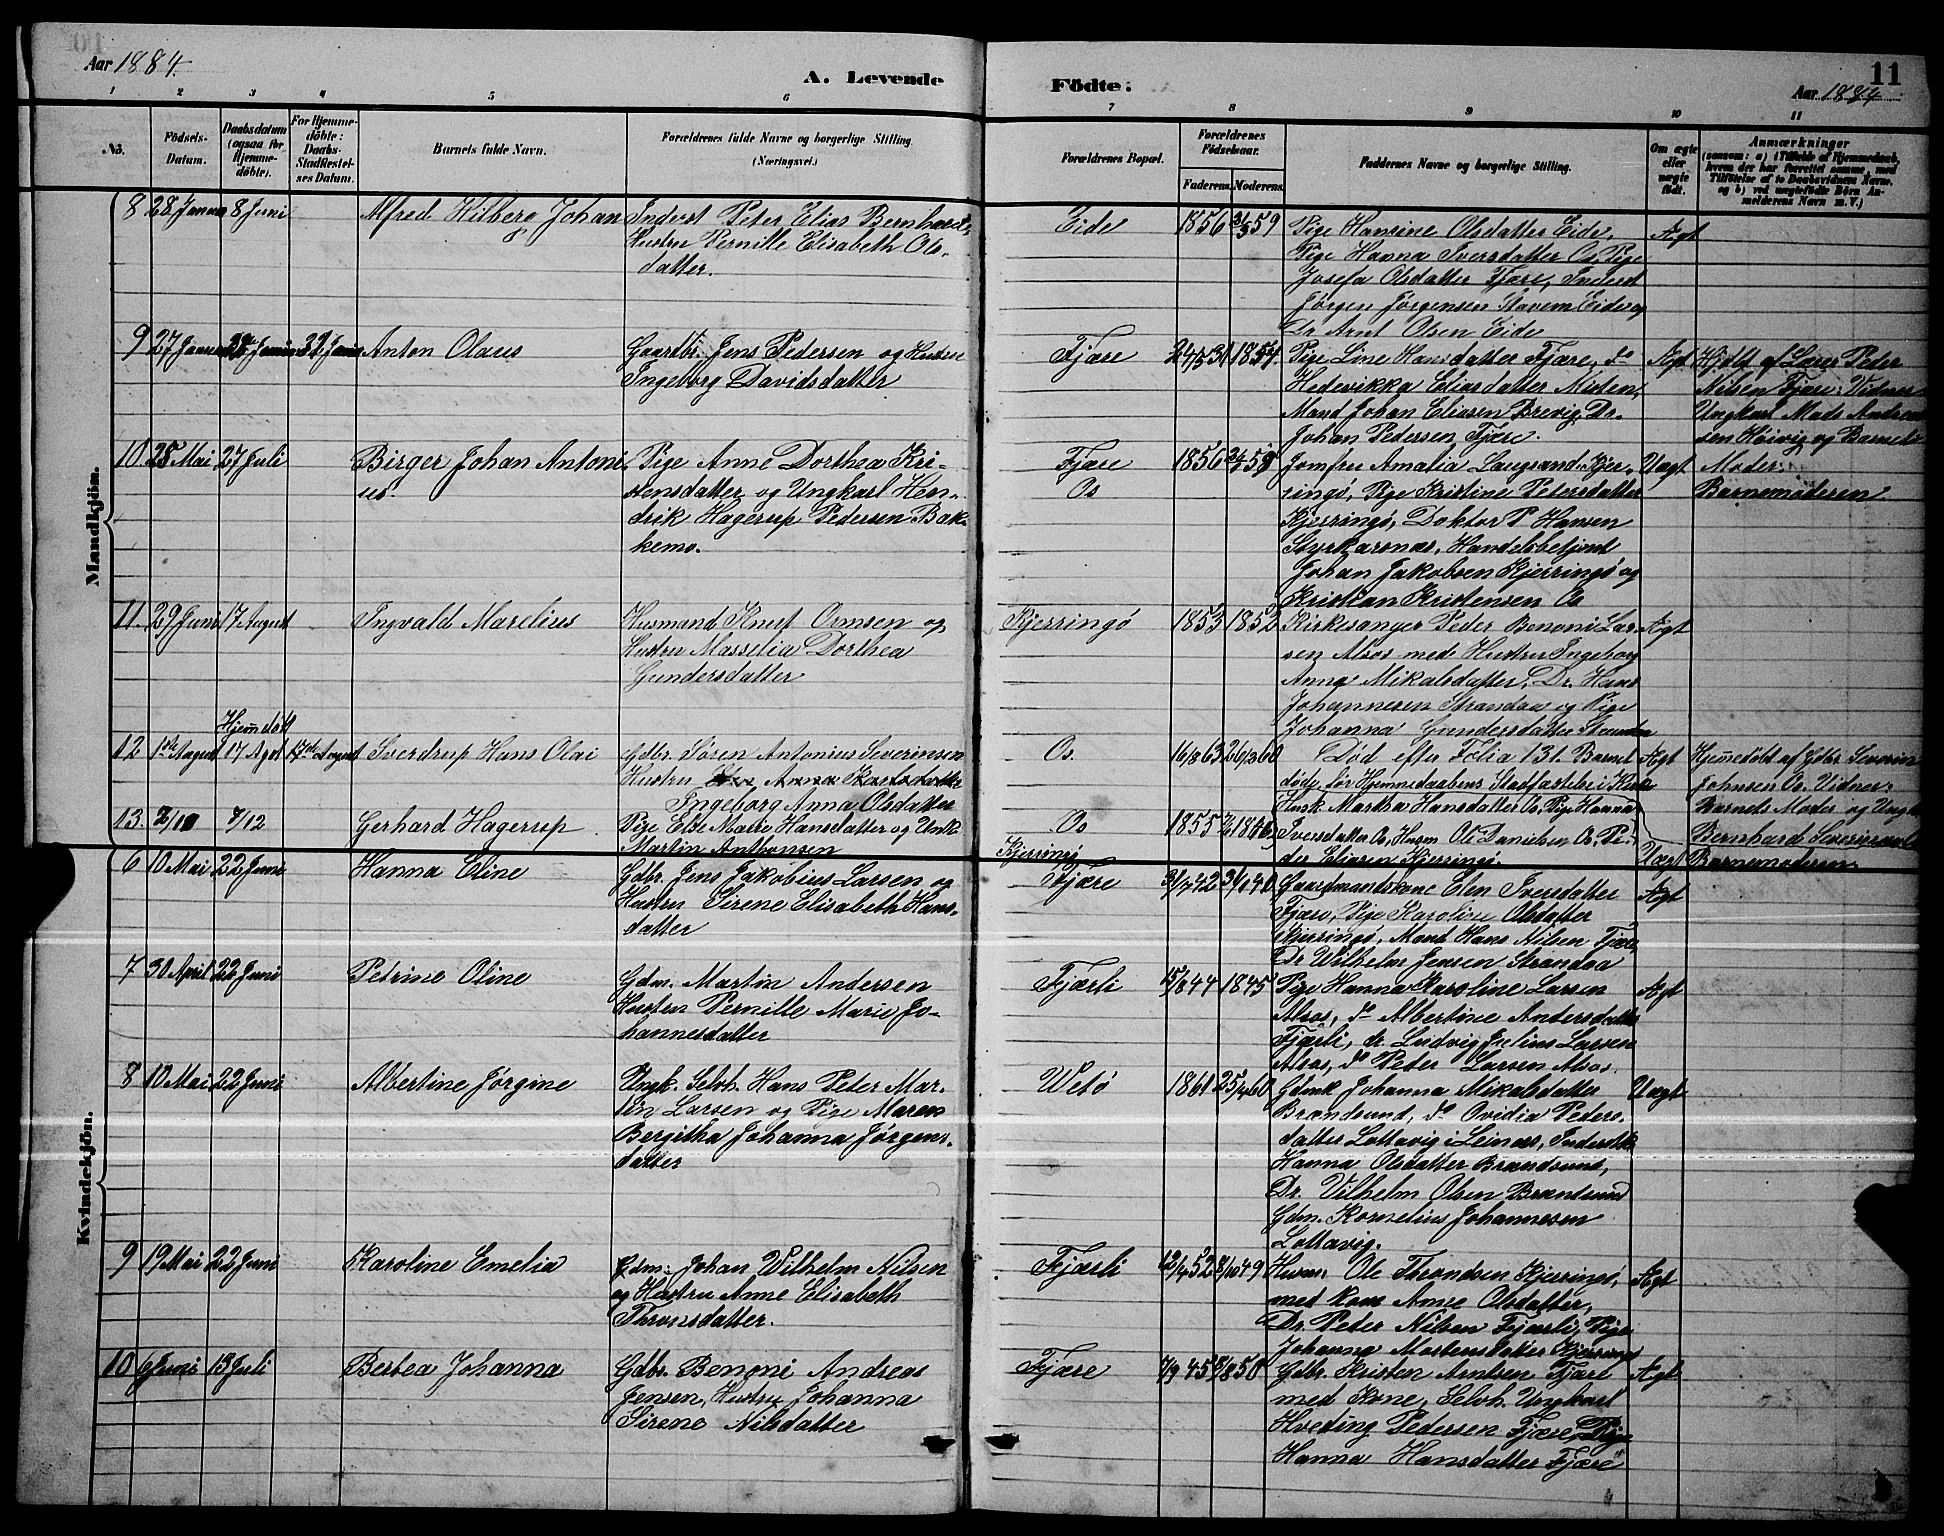 Aar 1884.
A. Levende
Födte.
11
Aar 1884
1 2 3 4 5 6 7 8 9 10 11
No.
Födsels-
Datum.
Daabsdatum
(ogsaa for
Hjemme-
döbte).
For Hjemme-
döbte:
Daabs-
Stadfestel-
ses Datum.
Barnets fulde Navn.
Forældrenes fulde Navne og borgerlige Stilling.
(Næringsvei.)
Forældrenes Bopæl.
Forældrenes
Födselsaar.
Faderens. Moderens.
Faddernes Navne og borgerlige Stilling.
Om ægte
eller
uægte
födt.
Anmærkninger
(saasom: a) i Tilfælde af Hjemmedaab,
hvem der har forrettet samme, med
Tilföielse af to Daabsvidners Navne,
og b) ved uægtefödte Börn An-
melderens Navn m. V.)
Mandkjön.
8 28 Januar 8 Juni
Alfred Hilberg Johan
Inderst Peter Elias Bernhard
Hustru Pernille Elisabeth Ols-
datter.
Eide
1856 59
Pige Hansine Olsdatter Eide,
Pige Hanna Iversdatter Os, Pige
Josefa Olsdatter Fjære, Inderst
Jørgen Jørgensen Stavem Eide og
Dr Arnt Olsen Eide
Ægt
9 27 Januar
Anton Olaus
Gaardbr. Jens Pedersen og Hustru
Ingeborg Davidsdatter
Fjære
1854.
Pige Line Hansdatter Fjære, do
Hedevikka Eliasdatter Nielsen,
Mand Johan Eliasen Brevig, Dr.
Johan Pedersen Fjære.
Ægt
Hjdt af Lærer Peter
Nilsen Fjære. Vidner
Ungkarl Mads Andrea
sen Høivig og Barnets
Moder.
10 25 Mai 27 Juli
Birger Johan Antoni
us.
Pige Anne Dorthea Kri-
stensdatter og Ungkarl Hen-
drik Hagerup Pedersen Bak-
kemo.
Fjære
Os
1856
Jomfru Amalia Langsand Kjer-
ringø, Pige Kristine Petersdatter
Kjerringø, Doktor P Hansen
Styrkarsnæs, Handelsbetjent
Johan Jakobsen Kjerringø og
Kristian Kristensen Os
Uægt
Barnemoderen
11. 29 Juni 17 August
Ingvald Marelius
Husmand Knut Ormsen og
Hustru Masselia Dorthea
Gundersdatter
Kjerringø
1853 1852
Kirkesanger Peder Benoni Lar-
sen Alsos med Hustru Ingeborg
Anna Mikalsdatter, Dr. Hans
Johannesen Strandaa og Pige
Johanna Gundersdatter Strandaa
Ægt
Hjemdöbt
12 1ste August 17 Agst 17de August
Sverdrup Hans Olai
Gdbr. Søren Antonius Severinsen
Hustru
Ingeborg Anna Olsdatter
Os.
16/8 63 26/3 60
Død efter Folia 131. Barnet
døde før Hjemmedaabens Stadfæstelse i Kirke
Ægt
Hjemmedöbt af Gdbr. Severin
Johnsen Os. Vidner:
Barnets Moder og Ungk
Bernhard Severinsen
13. 2/11 7/12
Gerhard Hagerup
Pige Else Marie Hansdatter og Unk
Martin Anthonsen
Os
Kjerringø
1855
Husk. Martha Hansdatter Os, Pige Hanna
Iversdatter Os, Husm Ole Danielsen Os, Pe-
der Eliasen Kjerringø.
Uægt
Barnemoderen
Kvindekjön.
6 10 Mai 22 Juni
Hanna Eline
Gdbr. Jens Jakobius Larsen og
Hustru Sirene Elisabeth Hans-
datter
Fjære
31/7 42 31/1 40
Gaardmandskone Elen Iversdatter
Fjære, Pige Karoline Olsdatter
Kjerringø, Mand Hans Nilsen Fjære
Dr Wilhelm Jensen Strandaa
Ægt
7 30 April 22 Juni
Petrine Oline
Gdm. Martin Andersen
Hustru Pernille Marie Jo-
hannesdatter
Fjærli
15/8 44 1845
Pige Hanna Karoline Larsen
Alsos, do Albertine Andersdatter
Fjærli, dr. Ludvig Julius Larsen
Alsos, do Peter Larsen Alsos.
Ægt
8 10 Mai 22 Juni
Albertine Jørgine
Ungk. Selvh. Hans Peter Mar-
tin Larsen og Pige Maren
Bergitha Johanna Jørgens-
datter
Vetø
1861 25/4 60
Gdmk Johanna Mikalsdatter
Brændsund, do Ovidia Peders-
datter Lottavig i Leines, Inderstk
Hanna Olsdatter Brændsund,
Dr. Vilhelm Olsen Brændsund
Gdm. Kornelius Johannesen
Lottavig.
Uægt
9 19 Mai 22 Juni
Karoline Emelia
Gdm. Johan Wilhelm Nilsen
og Hustru Anne Elisabeth
Thronsdatter.
Fjærli
12/4 52 8/10 49
Husm. Ole Throndsen Kjerringø,
med kone Anne Olsdatter,
Dr. Peter Nilsen Fjærli, Pige
Johanna Mortensdatter Kjerringø
Ægt
10 6 Juni 13 Juli
Bertea Johanna
Gdbr. Benoni Andreas
Jensen, Hustru Johanna
Sirene Nilsdatter
Fjære
7/9 45 8/8 50
Gdbr. Kristen Arntsen Fjære
med Kone, Selvh. Ungkarl
Hveding Pedersen Fjære, Pige
Hanna Hansdatter Fjære
Ægt